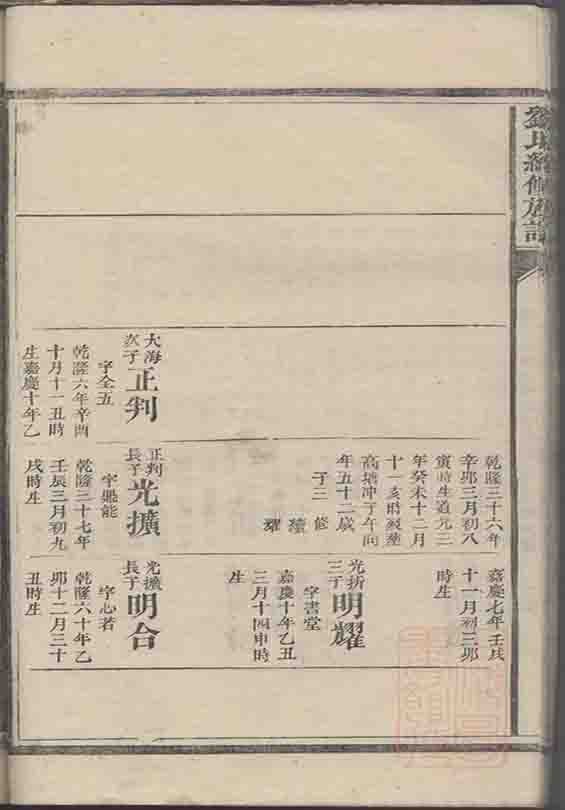 劉氏續修族譜
大海
次子
正判
字全五
乾隆六年辛酉
十月十一丑時
生嘉慶十年乙
乾隆三十六年
辛卯三月初八
寅時生道光三
年癸未十二月
十一亥時歿葬
高塘冲子午向
年五十二歲
子三 修
續
耀
正判
長子
光擴
能
乾隆三十七年
壬辰三月初九
戌時生
嘉慶七年壬戌
十一月初三卯
時生
光折
三子
明耀
字書堂
嘉慶十年乙丑
三月十四申時
生
光擴
長子
明合
字心若
乾隆六十年乙
卯十二月三十
丑時生